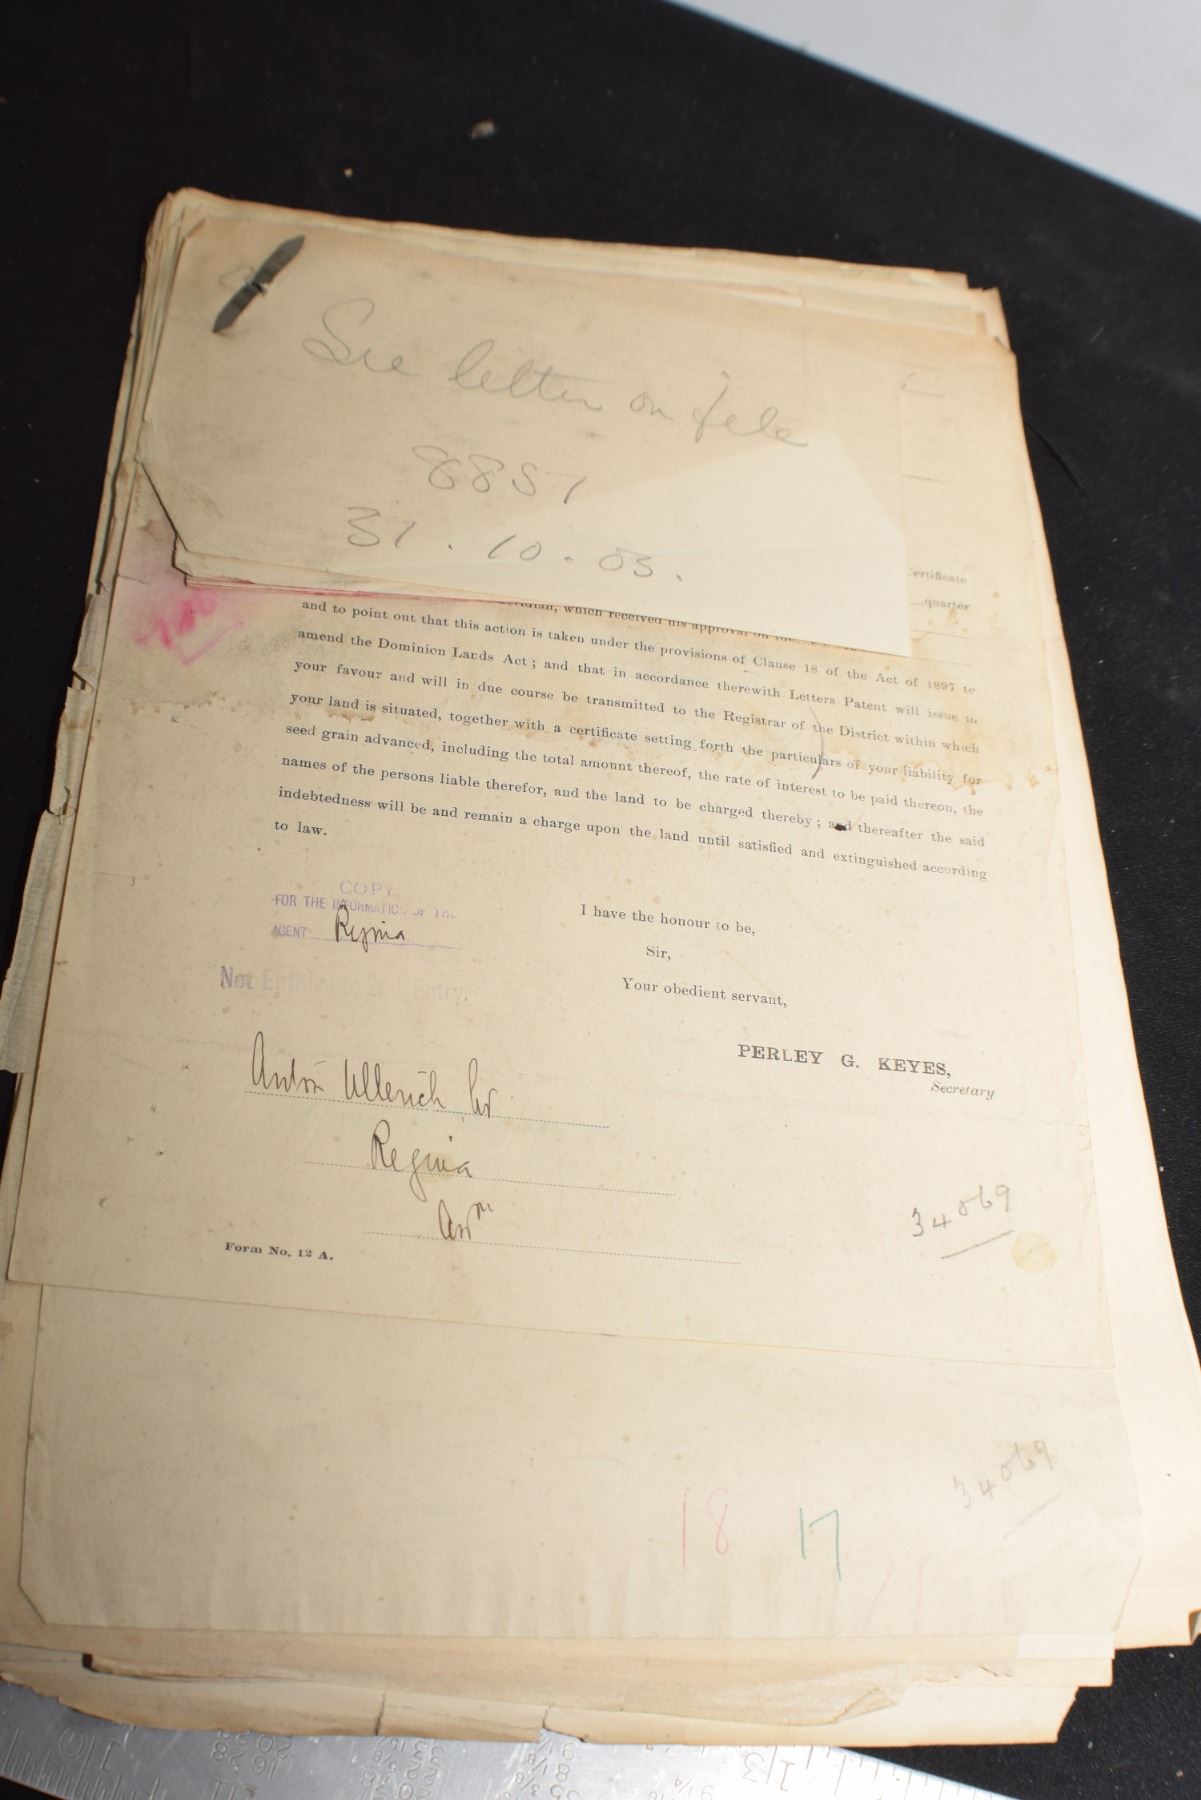 See letter on file
8857
31.10.03.
ertificate
quarter
which received his approval on the
and to point out that this action is taken under the provisions of Clause 18 of the Act of 1897 to
amend the Dominion Lands Act; and that in accordance therewith Letters Patent will issue in
your favour and will in due course be transmitted to the Registrar of the District within which
your land is situated, together with a certificate setting forth the particulars of your liability for
seed grain advanced, including the total amount thereof, the rate of interest to be paid thereon, the
names of the persons liable therefor, and the land to be charged thereby; and thereafter the said
indebtedness will be and remain a charge upon the land until satisfied and extinguished according
to law.
COPY
FOR THE INFORMATION OF THE
AGENT Regina
Not Entitled Entry.
I have the honour to be,
Sir,
Your obedient servant,
PERLEY G. KEYES,
Secretary
Anton Ullerich, Sr
Regina
Assa
34069
Form No. 12 A.
34069
18 17